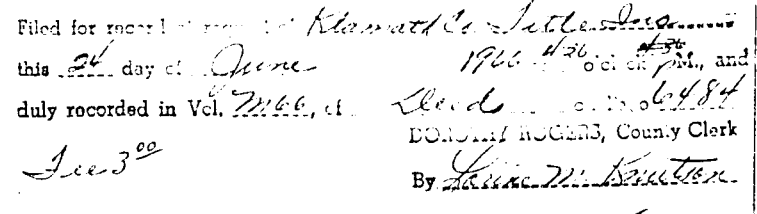 Filed for record at request of Klamath Co. Title Ins
this 24 day of June 1966 at 4:36 o'clock P M., and
duly recorded in Vol. M66, of Deeds on Page 6484
DOROTHY ROGERS, County Clerk
Fee 3 00
By M. Knutson